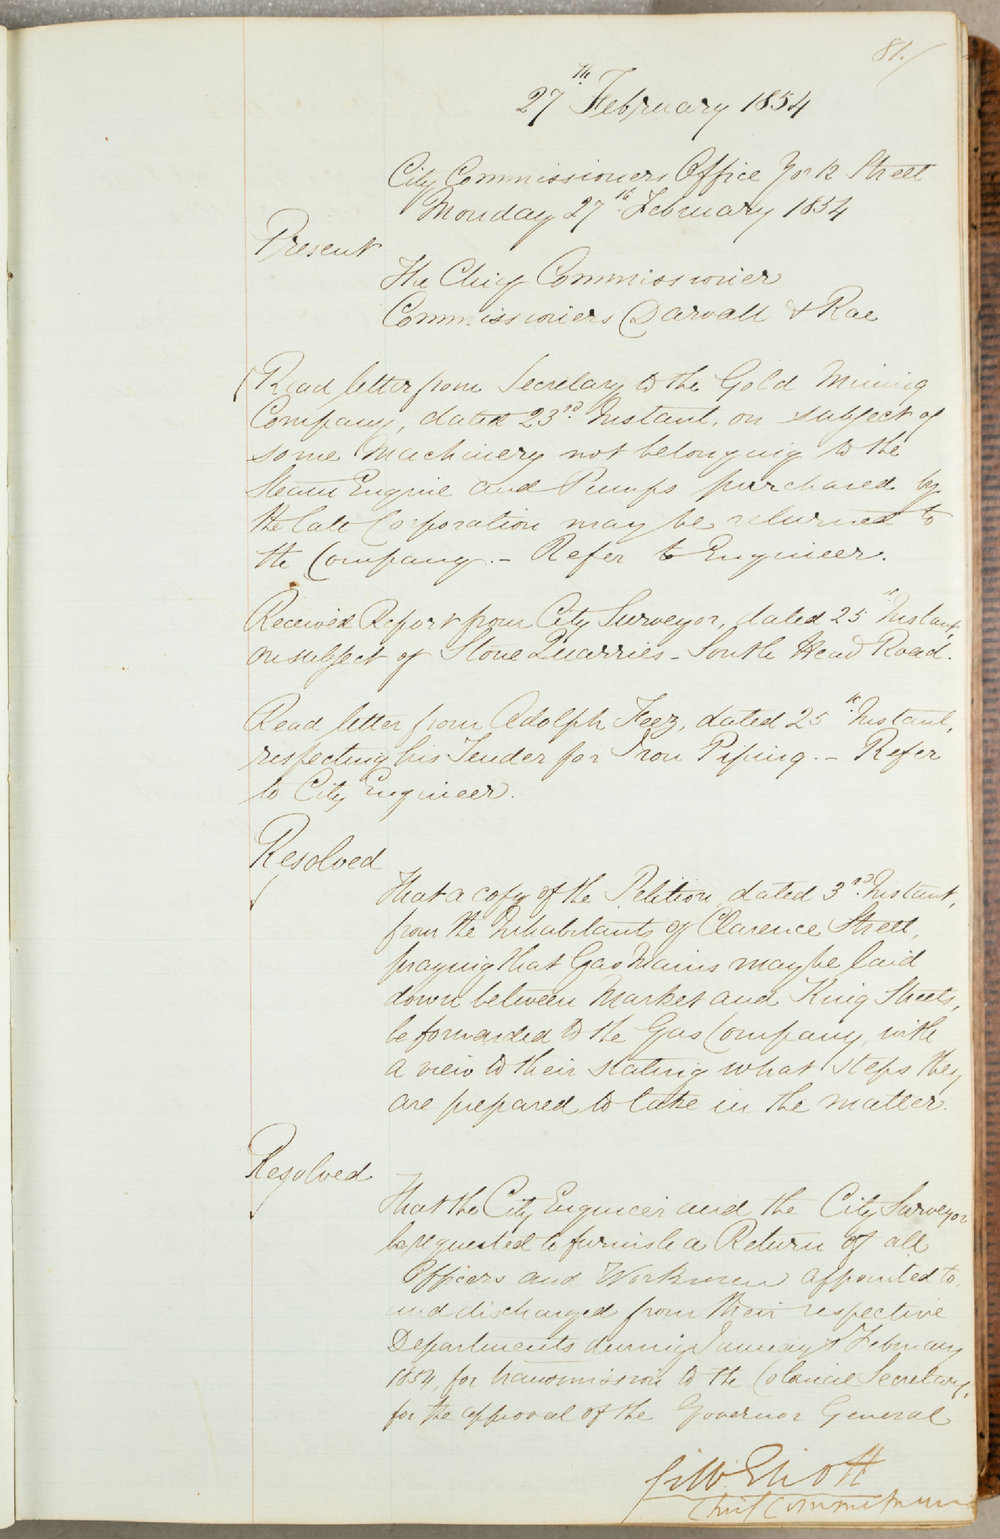 81./
27th February 1854
City Commissioners Office York Street
Monday 27th February 1854
Present
The Chief Commissioner
Commissioners Darvall & Rae
Read letter from Secretary to the Gold Mining
Company, dated 23rd Instant, on subject of
some Machinery not belonging to the
Steam Engine and Pumps purchased by
the late Corporation may be returned to
the Company. - Refer to Engineer.
Received Report from City Surveyor, dated 25th Instant,
on subject of Stone Quarries - South Head Road.
Read letter from Adolph Feez, dated 25th Instant,
respecting his Tender for Iron Piping. - Refer
to City Engineer.
Resolved
That a copy of the Petition dated 3rd Instant,
from the Inhabitants of Clarence Street,
praying that Gas Mains may be laid
down between Market and King Streets,
be forwarded to the Gas Company, with
a view to their stating what steps they
are prepared to take in the matter.
Resolved
That the City Engineer and the City Surveyor
be requested to furnish a Return of all
Officers and Workmen appointed to
and discharged from their respective
Departments during January & February
1854, for transmission to the Colonial Secretary,
for the approval of the Governor General
G. W. Eliott
Chief Commissioner